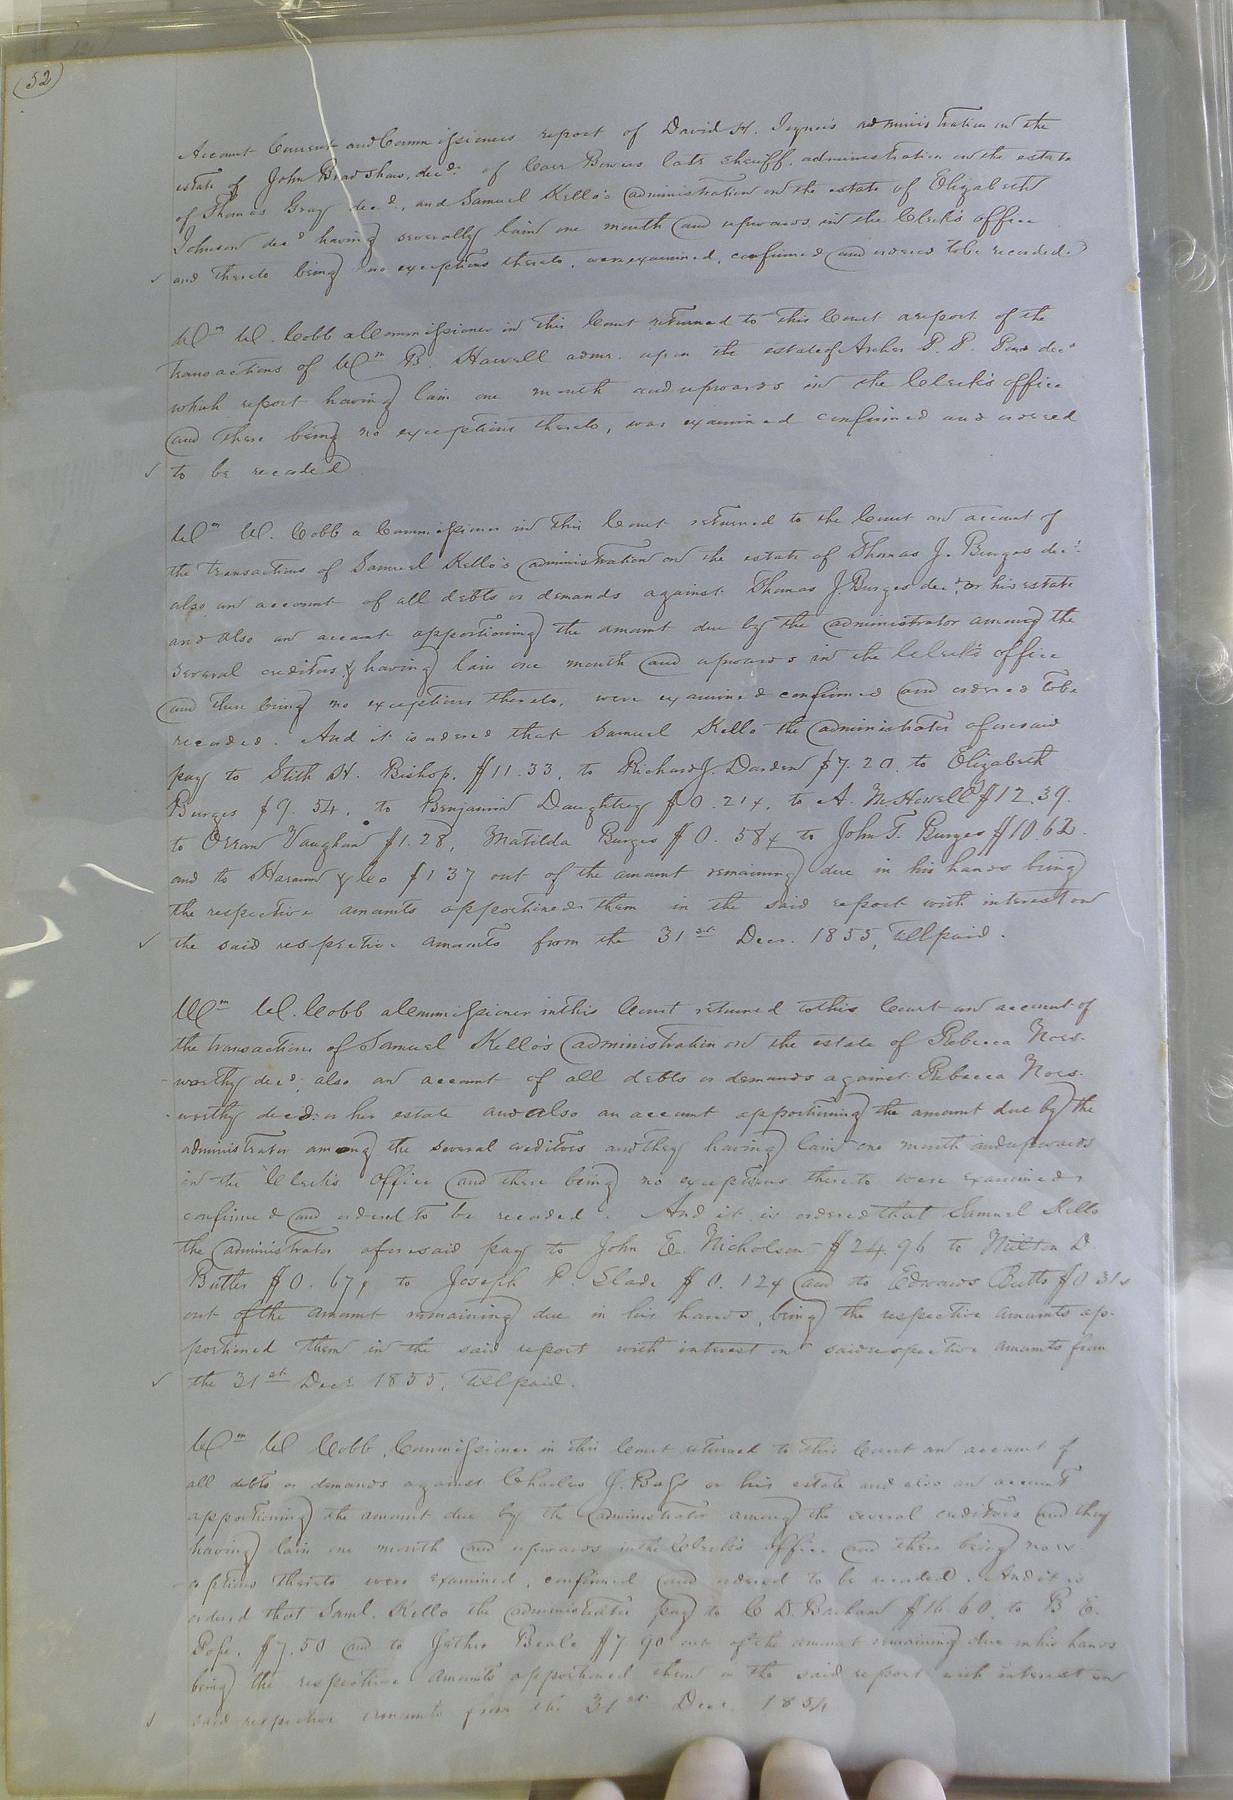 52
Account Current and Commissioners report of David H. administration on the
estate of John Bradshaw, decd. of Carr Bowers late sheriff, administration on the estate
of Thomas Gray decd, and Samuel Kello's administration on the estate of Elizabeth
Johnson decd having severally lain one month and upwards in the Clerk's office
and thereto being no exceptions thereto, were examined, confirmed and ordered to be recorded.
Wm W. Cobb a Commissioner in this Court returned to this Court a report of the
transactions of Wm B. Howell admr. upon the estate of Archer P. P. decd
which report having lain one month and upwards in the Clerk's office
and there being no exceptions thereto, was examined confirmed and ordered
to be recorded
Wm W. Cobb a Commissioner in this Court returned to the Court an account of
the transactions of Samuel Kello's administration on the estate of Thomas J. Burges decd.
also an account of all debts or demands against Thomas J. Burges decd, or his estate
and also an account apportioning the amount due by the administrator among the
several creditors & having lain one month and upwards in the Clerk's office
and there being no exceptions thereto, were examined confirmed and ordered to be
recorded. And it is ordered that Samuel Kello the administrator aforesaid
pay to Stith H. Bishop, $11.33, to Richard J. Darden $7.20, to Elizabeth
Burges $9.54, to Benjamin Daughtrey $0.21¢, to A. M. Howell $12.39.
to Orran Vaughan $1.28, Matilda Burges $0.58¢ to John T. Burges $10 62.
and to & Co $1 37 out of the amount remaining due in his hands being
the respective amounts apportioned them in the said report with interest on
the said respective amounts from the 31st Decr. 1855, till paid.
Wm W. Cobb a Commissioner in this Court returned to this Court an account of
the transactions of Samuel Kello's administration on the estate of Rebecca Nors-
worthy decd. also an account of all debts or demands against Rebecca Nors-
worthy decd. or her estate and also an account apportioning the amount due by the
administrator among the several creditors and they having lain one month and upwards
in the Clerk's office and there being no exceptions thereto were examined
confirmed and ordered to be recorded. And it is ordered that Samuel Kello
the administrator aforesaid pay to John E. Nicholson $24.96 to Milton D.
Butler $0.67¢, to Joseph P. Slade $0.12¢ and to Edward Butts $0 31¢
out of the amount remaining due in his hands, being the respective amounts ap-
portioned them in the said report with interest on said respective amounts from
the 31st Decr 1855, till paid.
Wm W Cobb, Commissioner in this Court returned to this Court an account of
all debts or demands against Charles J. Bass or his estate and also an account
apportioning the amount due by the administrator among the several creditors and they
having lain one month and upwards in the Clerk's office and there being no ex-
ceptions thereto were examined, confirmed and ordered to be recorded. And it is
ordered that Saml. Kello the administrator pay to C D. Barham $16 60, to B E.
Pope, $7.50 and to Beale $7 90 out of the amount remaining due in his hands
being the respective amounts apportioned them in the said report with interest on
said respective amounts from the 31st Decr. 1854